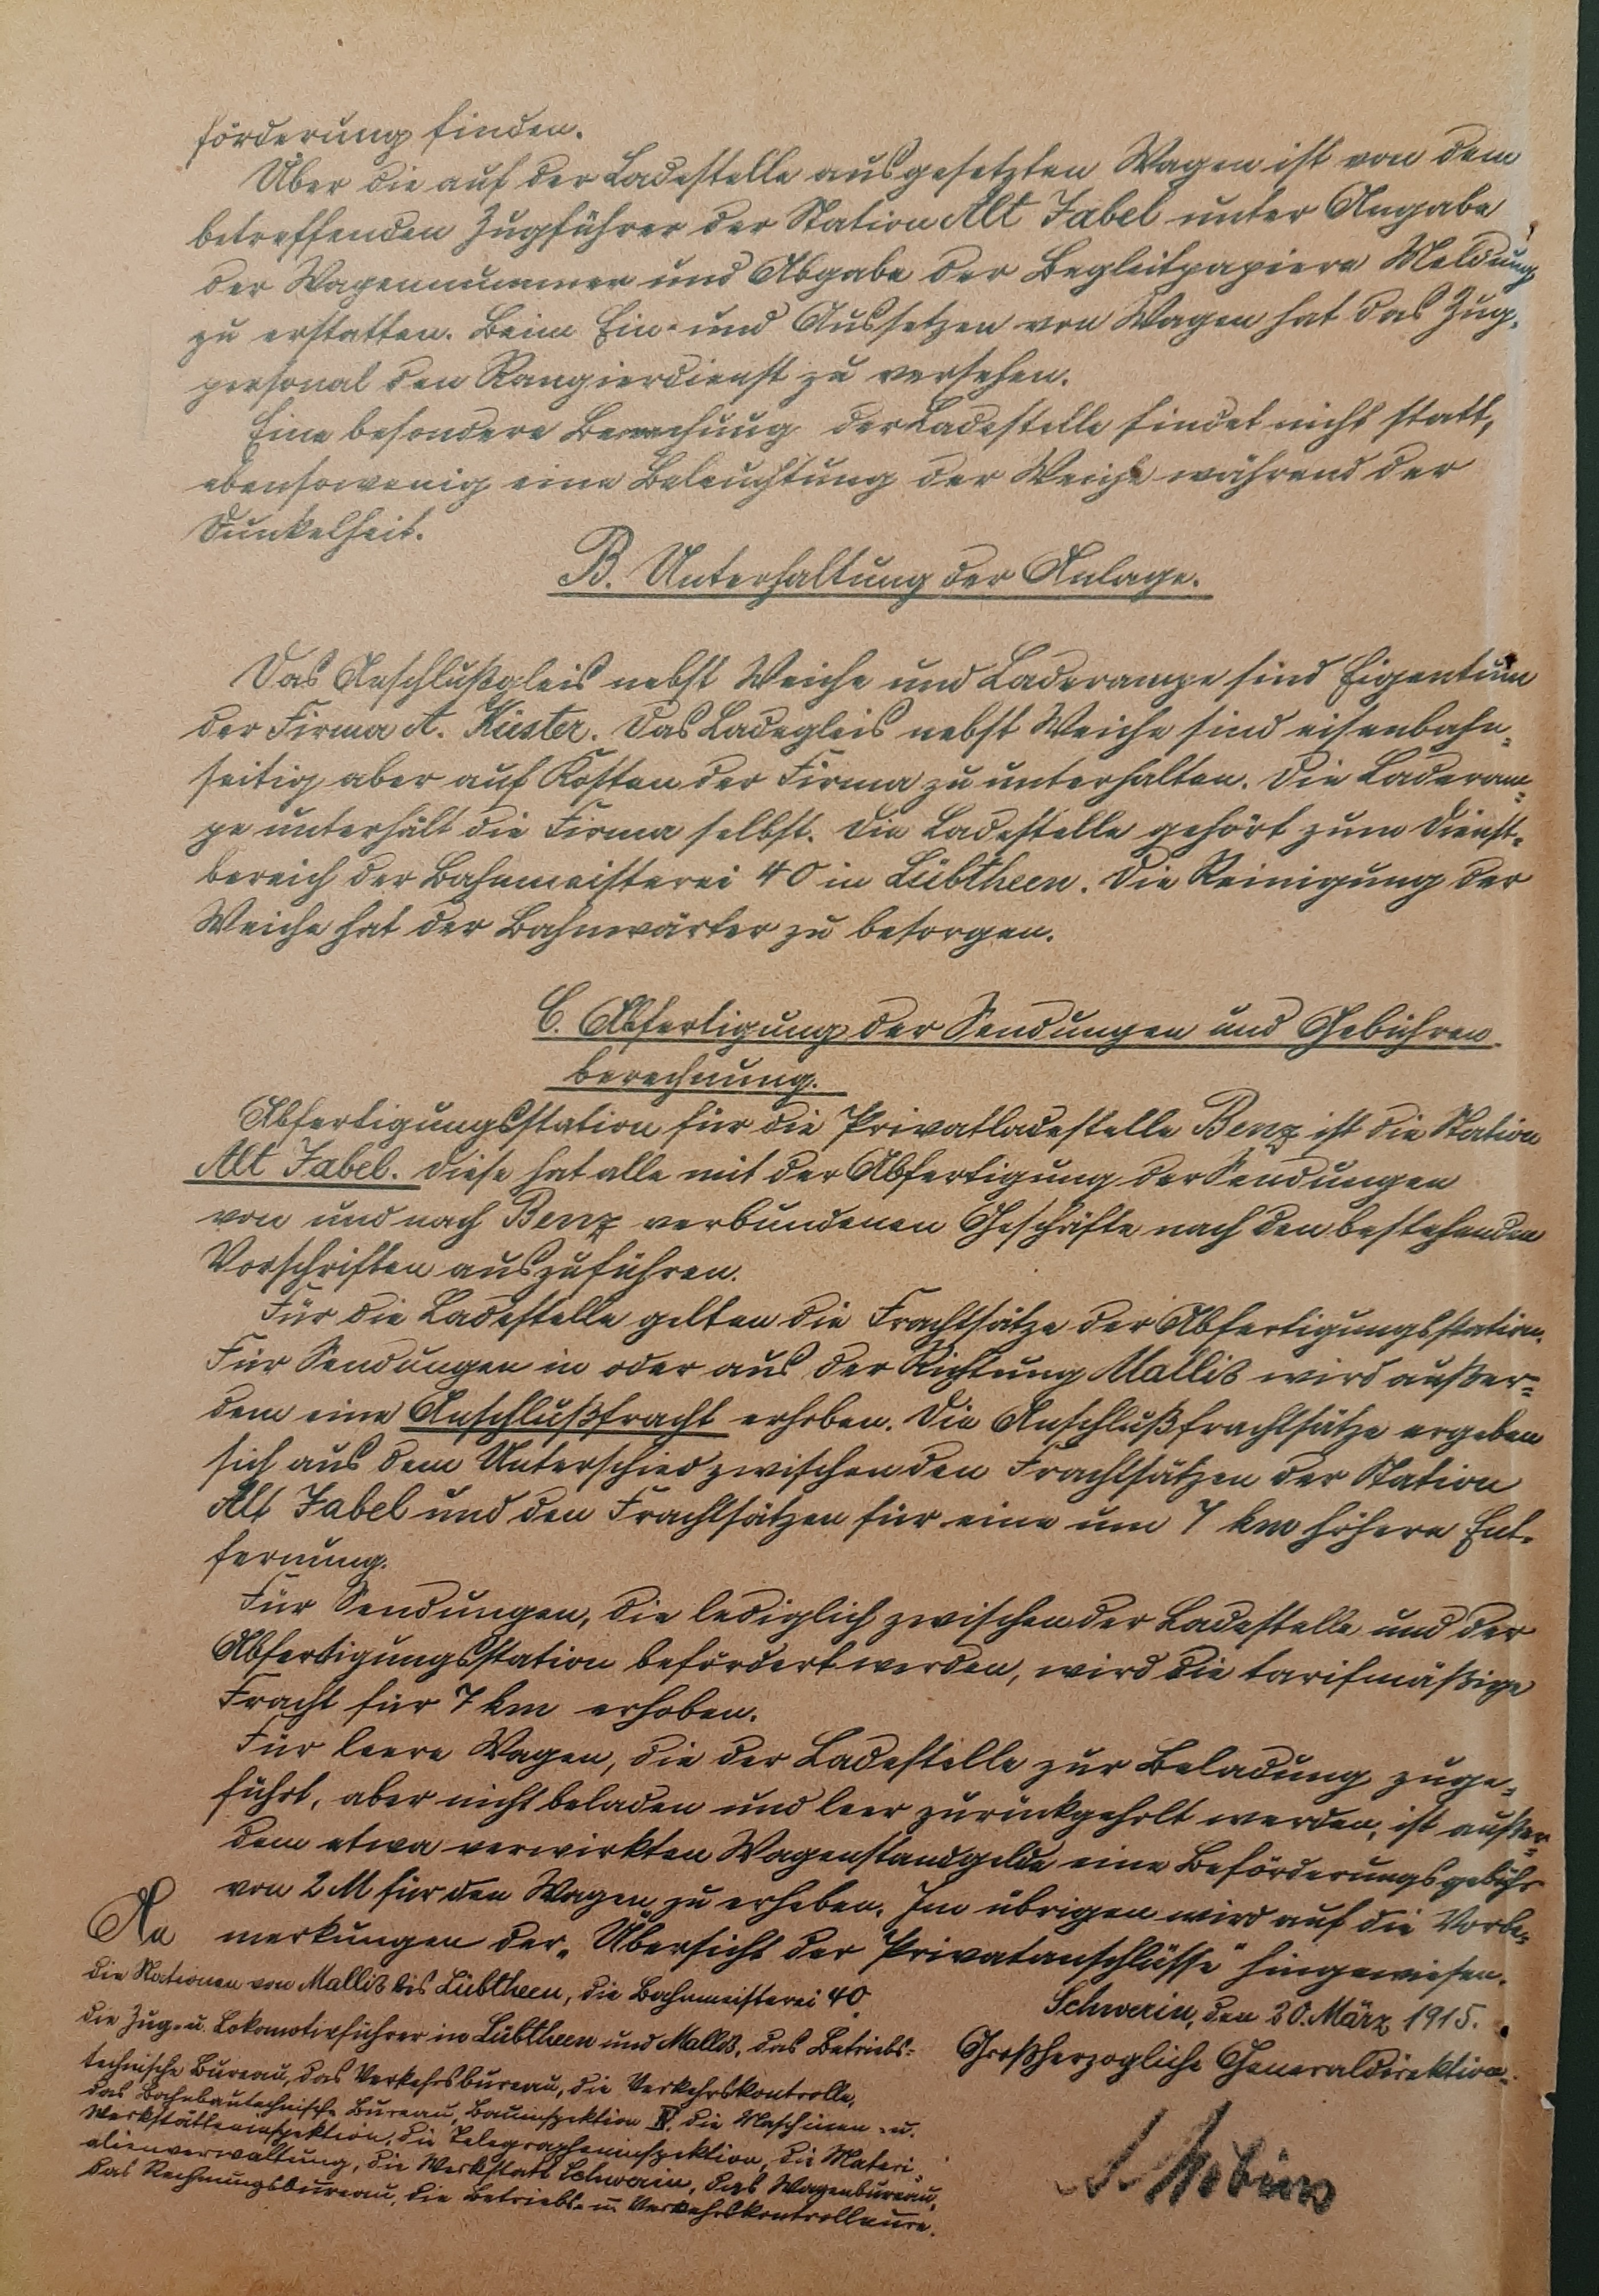 förderung finden.
Über die auf der Ladestelle ausgesetzten Wagen ist von dem
betreffenden Zugführer der Station Alt Jabel unter Angabe
der Wagennummer und Abgabe der Begleitpapiere Meldung
zu erstatten. Beim Ein- und Aussetzen von Wagen hat das Zug-
personal den Rangierdienst zu versehen.
Eine besondere Bewachung der Ladestelle findet nicht statt,
ebensowenig eine Beleuchtung der Weiche während der
Dunkelheit.
B. Unterhaltung der Anlage.
Das Anschlußgleis nebst Weiche und Laderampe sind Eigentum
der Firma A. Küster. Das Ladegleis nebst Weiche sind eisenbahn-
seitig aber auf Kosten der Firma zu unterhalten. Die Laderam-
pe unterhält die Firma selbst. Die Ladestelle gehört zum Dienst-
bereich der Bahnmeisterei 40 in Lübtheen. Die Reinigung der
Weiche hat der Bahnwärter zu besorgen.
C. Abfertigung der Sendungen und Gebühren-
berechnung.
Abfertigungsstation für die Privatladestelle Benz ist die Station
Alt Jabel. Diese hat alle mit der Abfertigung der Sendungen
von und nach Benz verbundenen Geschäfte nach den bestehenden
Vorschriften auszuführen.
Für die Ladestelle gelten die Frachtsätze der Abfertigungsstation.
Für Sendungen in oder aus der Richtung Malliß wird außer-
dem eine Anschlußfracht erhoben. Die Anschlußfrachtsätze ergeben
sich aus dem Unterschied zwischen den Frachtsätzen der Station
Alt Jabel und den Frachtsätzen für eine um 7 km höhere Ent-
fernung.
Für Sendungen, die lediglich zwischen der Ladestelle und der
Abfertigungsstation befördert werden, wird die tarifmäßige
Fracht für 7 km erhoben.
Für leere Wagen, die der Ladestelle zur Beladung zuge-
führt, aber nicht beladen und leer zurückgeholt werden, ist außer
dem etwa verwirkten Wagenstandgelde eine Beförderungsgebühr
von 2 M für den Wagen zu erheben. Im übrigen wird auf die Vorbe-
merkungen der „Übersicht der Privatanschlüsse“ hingewiesen.
Schwerin, den 30. März 1915.
Großherzogliche Generaldirektion.
An
die Stationen von Malliß bis Lübtheen, die Bahnmeisterei 40,
die Zug- u. Lokomotivführer in Lübtheen und Malliß, das Betriebs-
technische Bureau, das Verkehrsbureau, die Verkehrskontrolle,
das Bahnbautechnische Bureau, Bauinspektion IV, die Maschinen- u.
Werkstätteninspektion, die Telegrapheninspektion, die Materi-
alienverwaltung, die Werkstatt Schwerin, das Wagenbureau,
das Rechnungsbureau, die Betriebs- u. Verkehrskontrolleure.